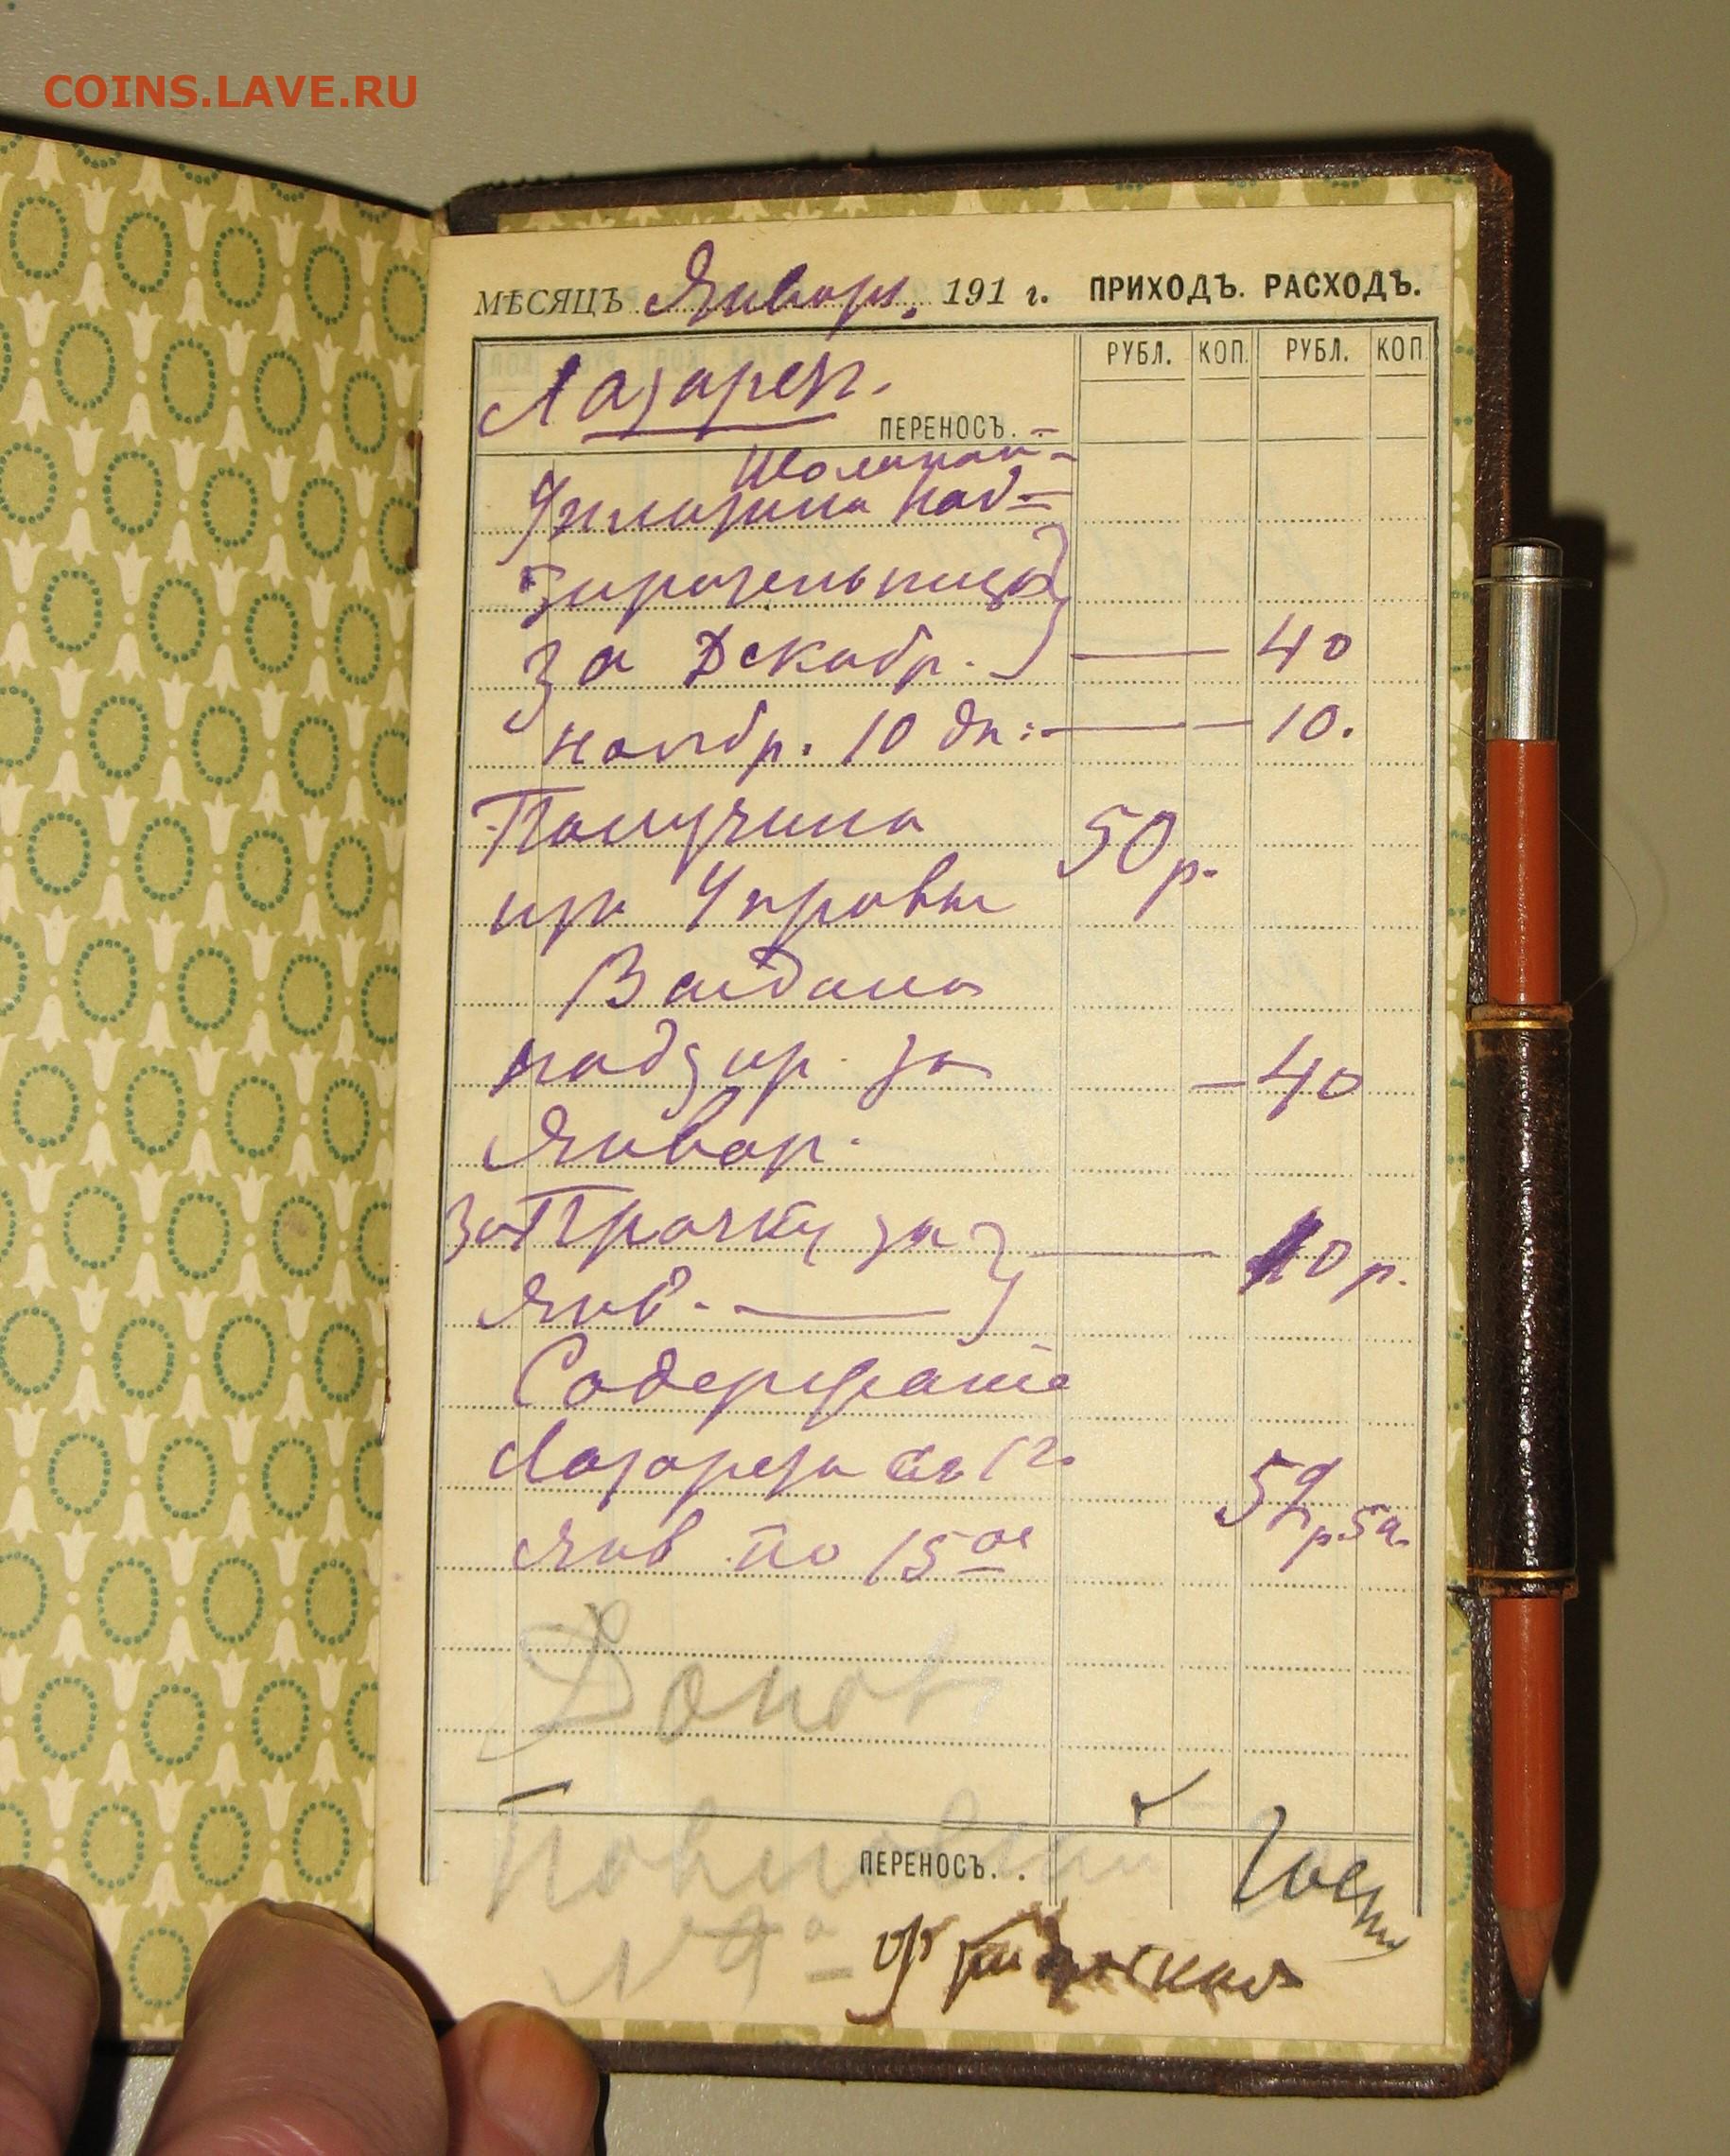 COINS.LAVE.RU
МѢСЯЦЪ Январь. 191 г. ПРИХОДЪ. РАСХОДЪ.
РУБЛ. КОП. РУБЛ. КОП
Лазарет.
ПЕРЕНОСЪ. -
Уплатила над=
зирательницѣ
за Декабр. — 40
ноябр. 10 дн: — 10.
Получила 50 р.
изъ Управы
Выдала
надзир. за — 40
Январ.
За Прачку за — 10 р.
Янв. —
Содержание
Лазарета съ 1го
Янв по 15ое
Домъ
ПЕРЕНОСЪ. .
№ 9